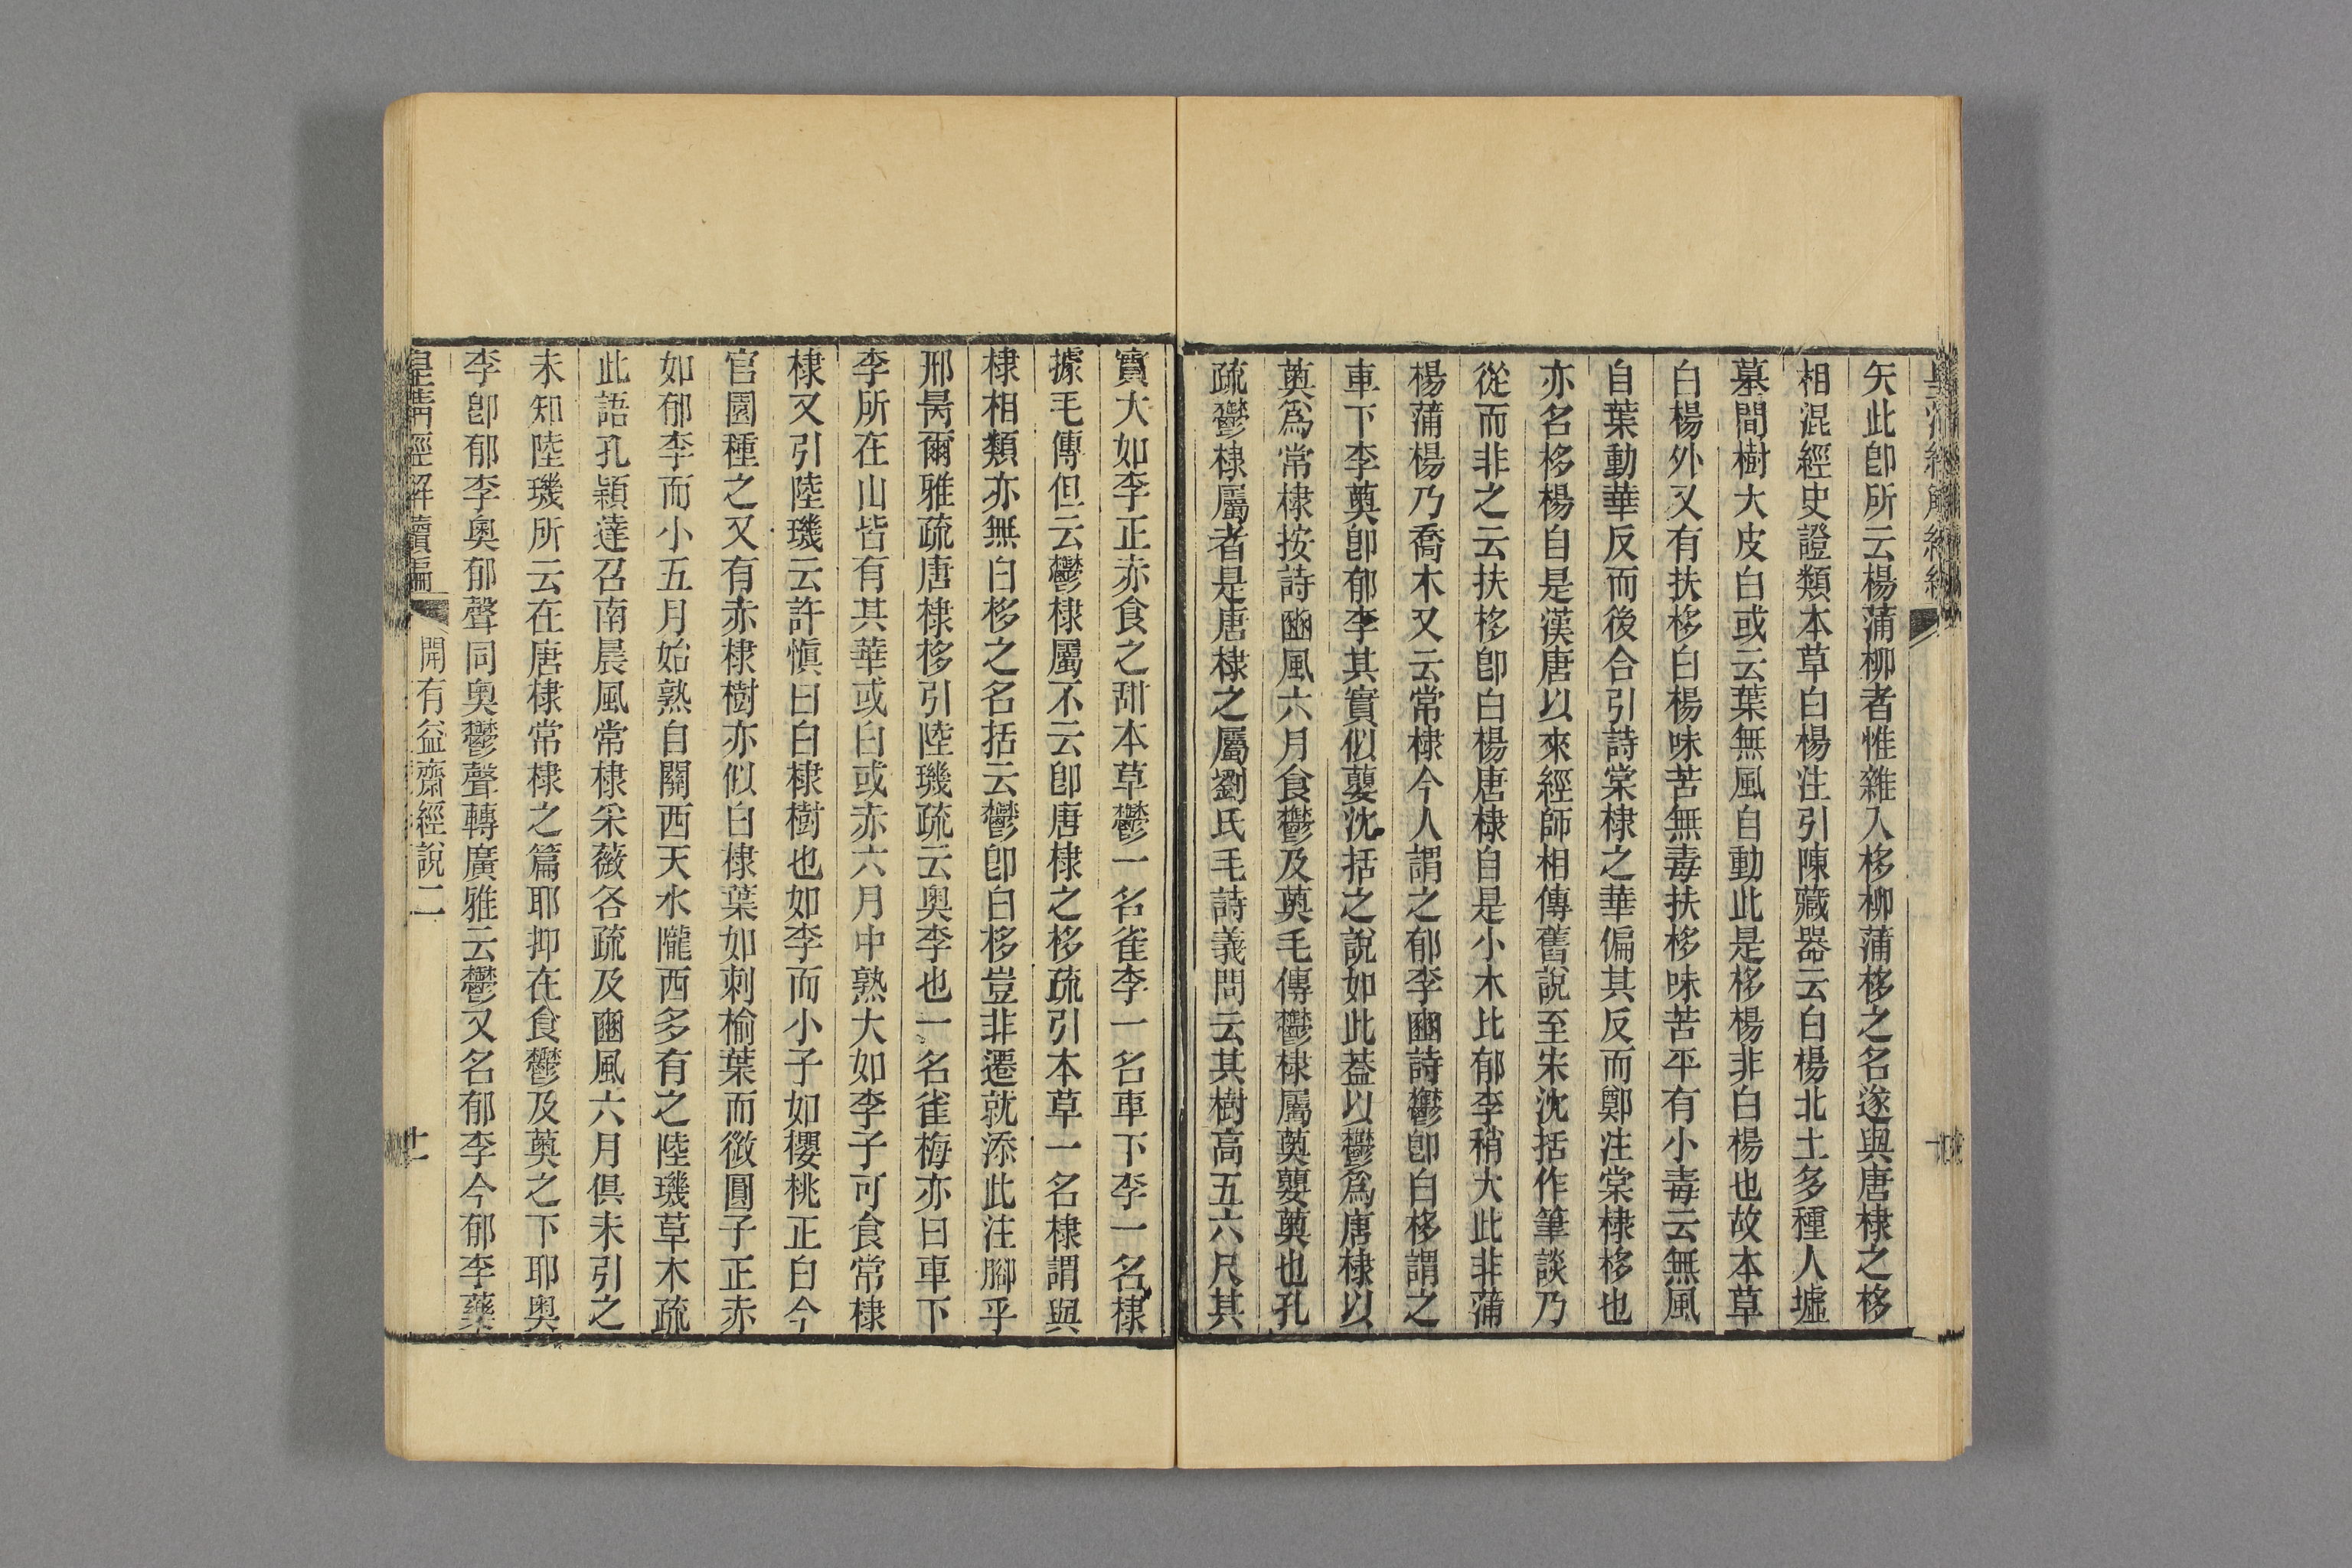 矢此卽所云楊蒲柳者惟雜入栘柳蒲栘之名遂與唐棣之栘
相混經史證類本草白楊注引陳藏器云白楊北土多種人墟
墓間樹大皮白或云葉無風自動此是栘楊非白楊也故本草
白楊外又有扶栘白楊味苦無毒扶栘味苦平有小毒云無風
自葉動華反而後合引詩棠棣之華偏其反而鄭注棠棣栘也
亦名栘楊自是漢唐以來經師相傳舊說至宋沈括作筆談乃
從而非之云扶栘卽白楊唐棣自是小木比郁李稍大此非蒲
楊蒲楊乃喬木又云常棣今人謂之郁李豳詩鬱卽白栘謂之
車下李薁卽郁李其實似蘡沈括之說如此葢以鬱爲唐棣以
薁爲常棣按詩豳風六月食鬱及薁毛傳鬱棣屬薁蘡薁也孔
疏鬱棣屬者是唐棣之屬劉氏毛詩義問云其樹高五六尺其
實大如李正赤食之甜本草鬱一名雀李一名車下李一名棣
據毛傳但云鬱棣屬不云卽唐棣之栘疏引本草一名棣謂與
棣相類亦無白栘之名括云鬱卽白栘豈非遷就添此注腳乎
邢昺爾雅疏唐棣栘引陸璣疏云奥李也一名雀梅亦曰車下
李所在山皆有其華或白或赤六月中熟大如李子可食常棣
棣又引陸璣云許愼曰白棣樹也如李而小子如櫻桃正白今
官園種之又有赤棣樹亦似白棣葉如刺榆葉而微圓子正赤
如郁李而小五月始熟自關西天水隴西多有之陸璣草木疏
此語孔穎達召南晨風常棣采薇各疏及豳風六月俱未引之
未知陸璣所云在唐棣常棣之篇耶抑在食鬱及薁之下耶奥
李卽郁李奥郁聲同奥鬱聲轉廣雅云鬱又名郁李今郁李藥
皇淸經解續編 開有益齋經說二 十